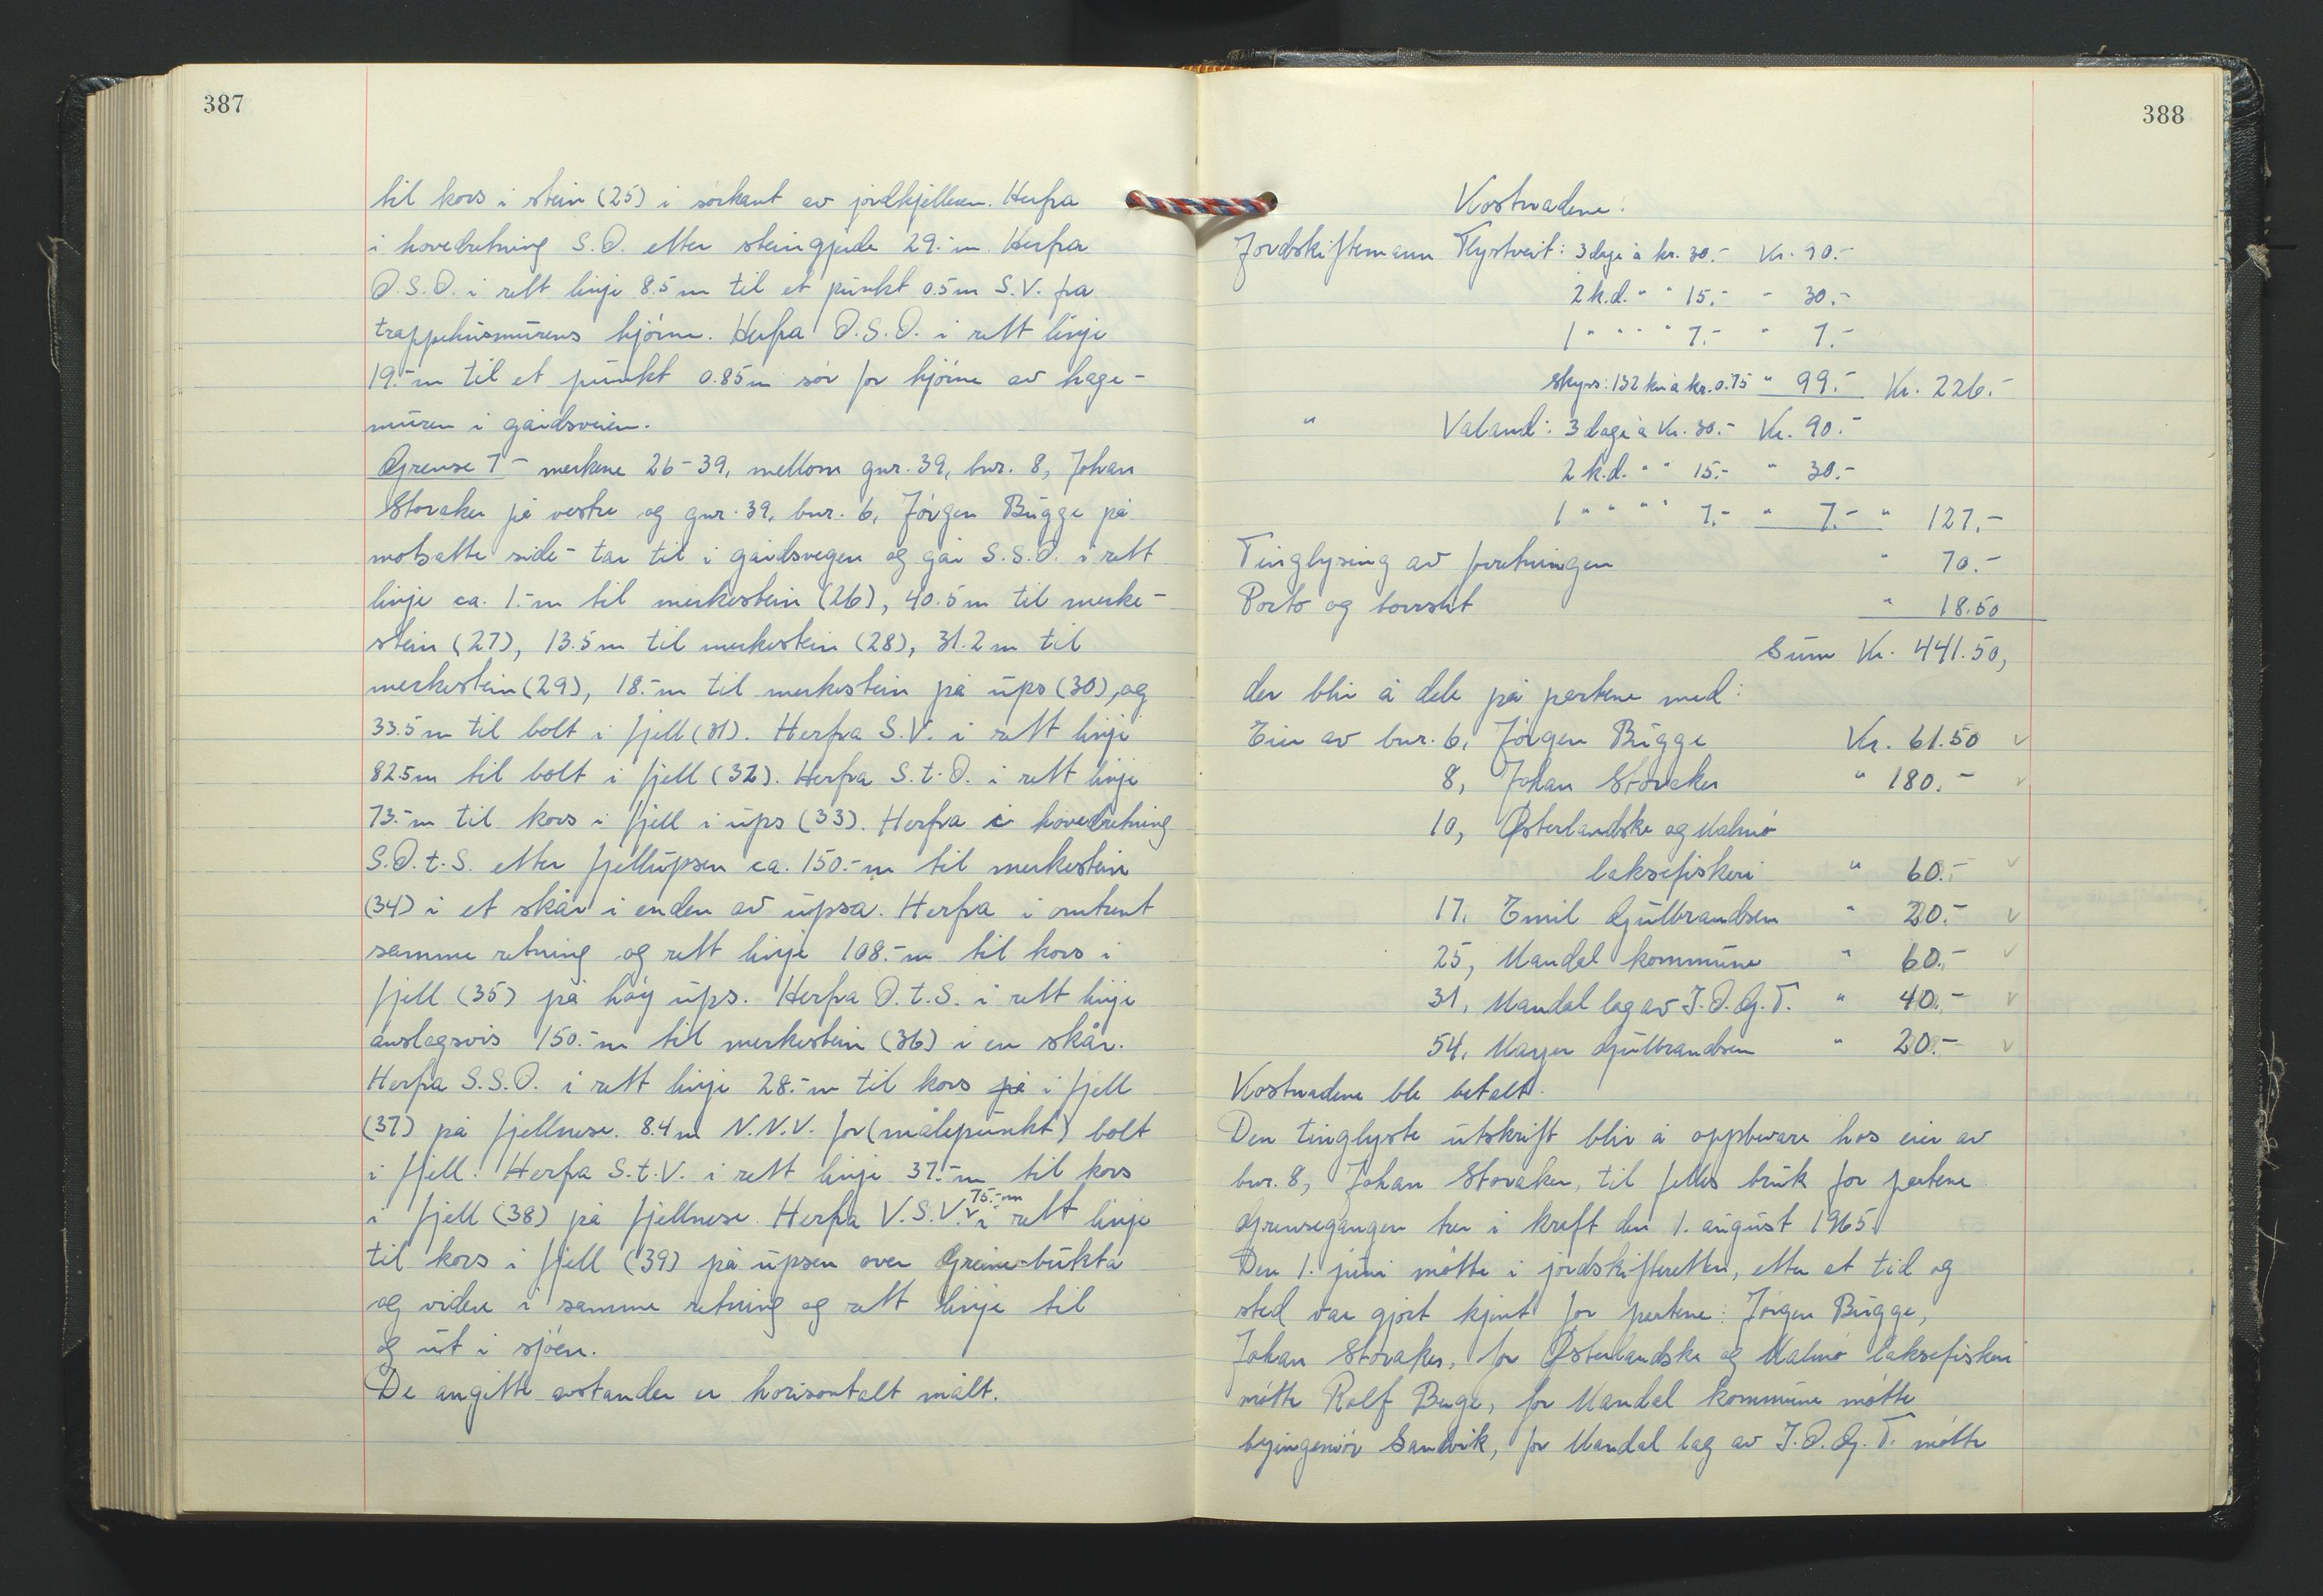 387
til kors i stein (25) i sørkant av jordkjelleren. Herfra
i hovedretning S.Ø. etter steingjerde 29.-m. Herfra
Ø.S.Ø. i rett linje 8.5 m til et punkt 0.5 m S.V. fra
trappehusmurens hjørne. Herfra Ø.S.Ø. i rett linje
19.-m til et punkt 0.85m sør for hjørne av hage-
muren i gårdsveien.
Grense 7 - merkene 26-39, mellom gnr. 39, bnr. 8, Johan
Storaker på vestre og gnr. 39, bnr. 6, Jørgen Bugge på
motsatte side - tar til i gårdsvegen og går S.S.Ø. i rett
linje ca. 1.-m til merkestein (26), 40.5 m til merke-
stein (27), 13.5 m til merkestein (28), 31.2 m til
merkestein (29), 18.-m til merkestein på ups (30), og
33.5 m til bolt i fjell (31). Herfra S.V. i rett linje
82.5m til bolt i fjell (32). Herfra S.t.Ø. i rett linje
73.-m til kors i fjell i ups (33). Herfra i hovedretning
S.Ø.t.S. etter fjellupsen ca. 150.-m til merkestein
(34) i et skår i enden av upsa. Herfra i omtrent
samme retning og rett linje 108.-m til kors i
fjell (35) på høg ups. Herfra Ø.t.S. i rett linje
anslagsvis 150.-m til merkestein (36) i en skår.
Herfra S.S.Ø. i rett linje 28.-m til kors på i fjell
(37) på fjellnese. 8.4 m N.N.V. for (målepunkt) bolt
i fjell. Herfra S.t.V. i rett linje 37.-m til kors
i fjell (38) på fjellnese. Herfra V.S.V. 75.-m i rett linje
til kors i fjell (39) på upsen over Greinebukta
og videre i samme retning og rett linje til
og ut i sjøen.
De angitte avstander er horisontalt målt.
388
Kostnadene:
Jordskiftemann Flystveit: 3 dage à kr. 30.- Kr. 90.-
2 k.d. " " 15.- " 30.-
1 " " " " 7.- " 7.-
Skyss: 132 km à kr. 0.75 " 99.- Kr. 226.-
" Valand: 3 dage à Kr. 30.- Kr. 90.-
2 k.d. " " 15.- " 30.-
1 " " " " 7.- " 7.- " 127.-
Tinglysing av forretningen " 70.-
Porto og " 18.50
Sum Kr. 441.50,
der blir å dele på partene med:
Eier av bnr. 6, Jørgen Bugge Kr. 61.50 v
8, Johan Storaker " 180.- v
10, Østerlandske og Malmø
laksefiskeri " 60.- v
17, Emil Gulbrandsen " 20.- v
25, Mandal kommune " 60.- v
31, Mandal lag av I.O.G.T. " 40.- v
54, Gulbrandsen " 20.- v
Kostnadene ble betalt.
Den tinglyste utskrift blir å oppbevare hos eier av
bnr. 8, Johan Storaker, til felles bruk for partene
Grensegangen trer i kraft den 1. august 1965.
Den 1. juni møtte i jordskifteretten, etter at tid og
sted var gjort kjent for partene: Jørgen Bugge,
Johan Storaker, for Østerlandske og Malmø laksefiskeri
møtte Rolf Buge, for Mandal kommune møtte
byingeniør Sandvik, for Mandal lag av I.O.G.T. møtte